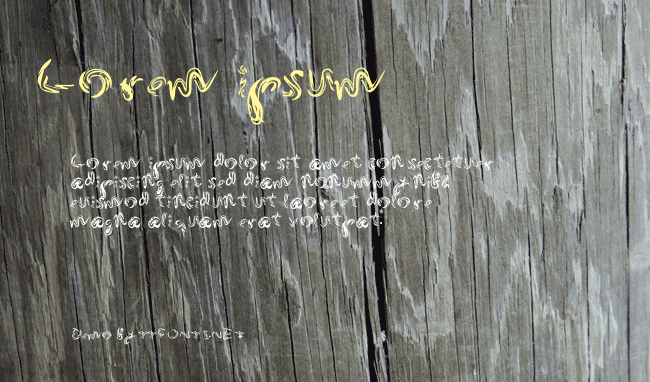 Lorem ipsum
Lorem ipsum dolor sit amet consectetuer
adipiscing elit sed diam nonummy nibh
euismod tincidunt ut laoreet dolore
magna aliquam erat volutpat
Demo by TTFONT.NET